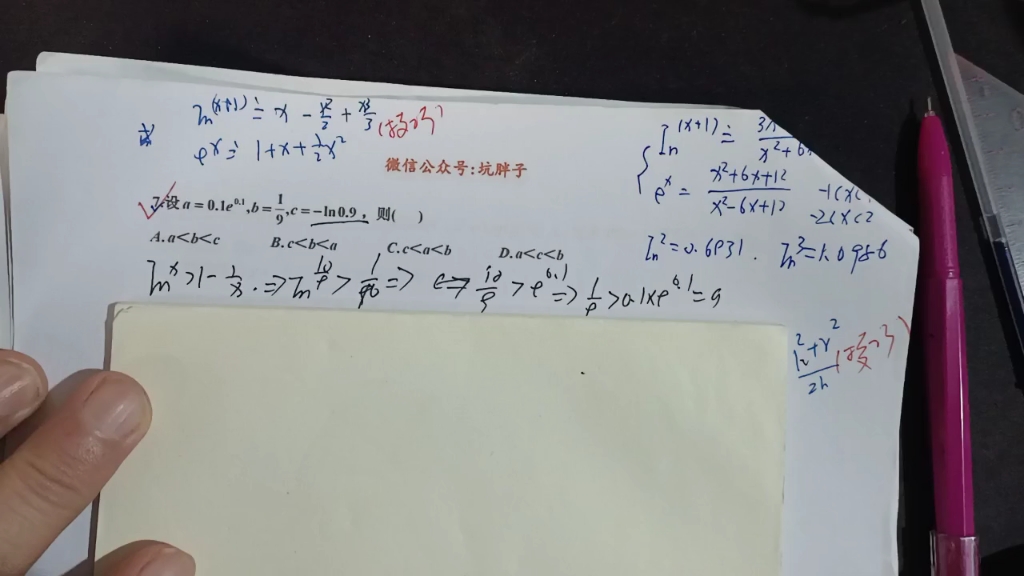 ln(x+1) ≐ x - x²/2 + x³/3
e^x ≐ 1+x+½x²
微信公众号:坑胖子
7.设a=0.1e^0.1,b=1/9,c=-ln0.9,则( )
A.a<b<c B.c<b<a C.c<a<b D.a<c<b
ln x>1-1/x.⇒ln 10/9 > 1/10 ⇒ ⇔ 10/9 > e^0.1 ⇒ 1/9 > 0.1×e^0.1=a
ln(x+1) ≐
e^x = x²+6x+12 / x²-6x+12
-2<x<2
ln2=0.6931. ln3=1.0986
h²+r² / 2h